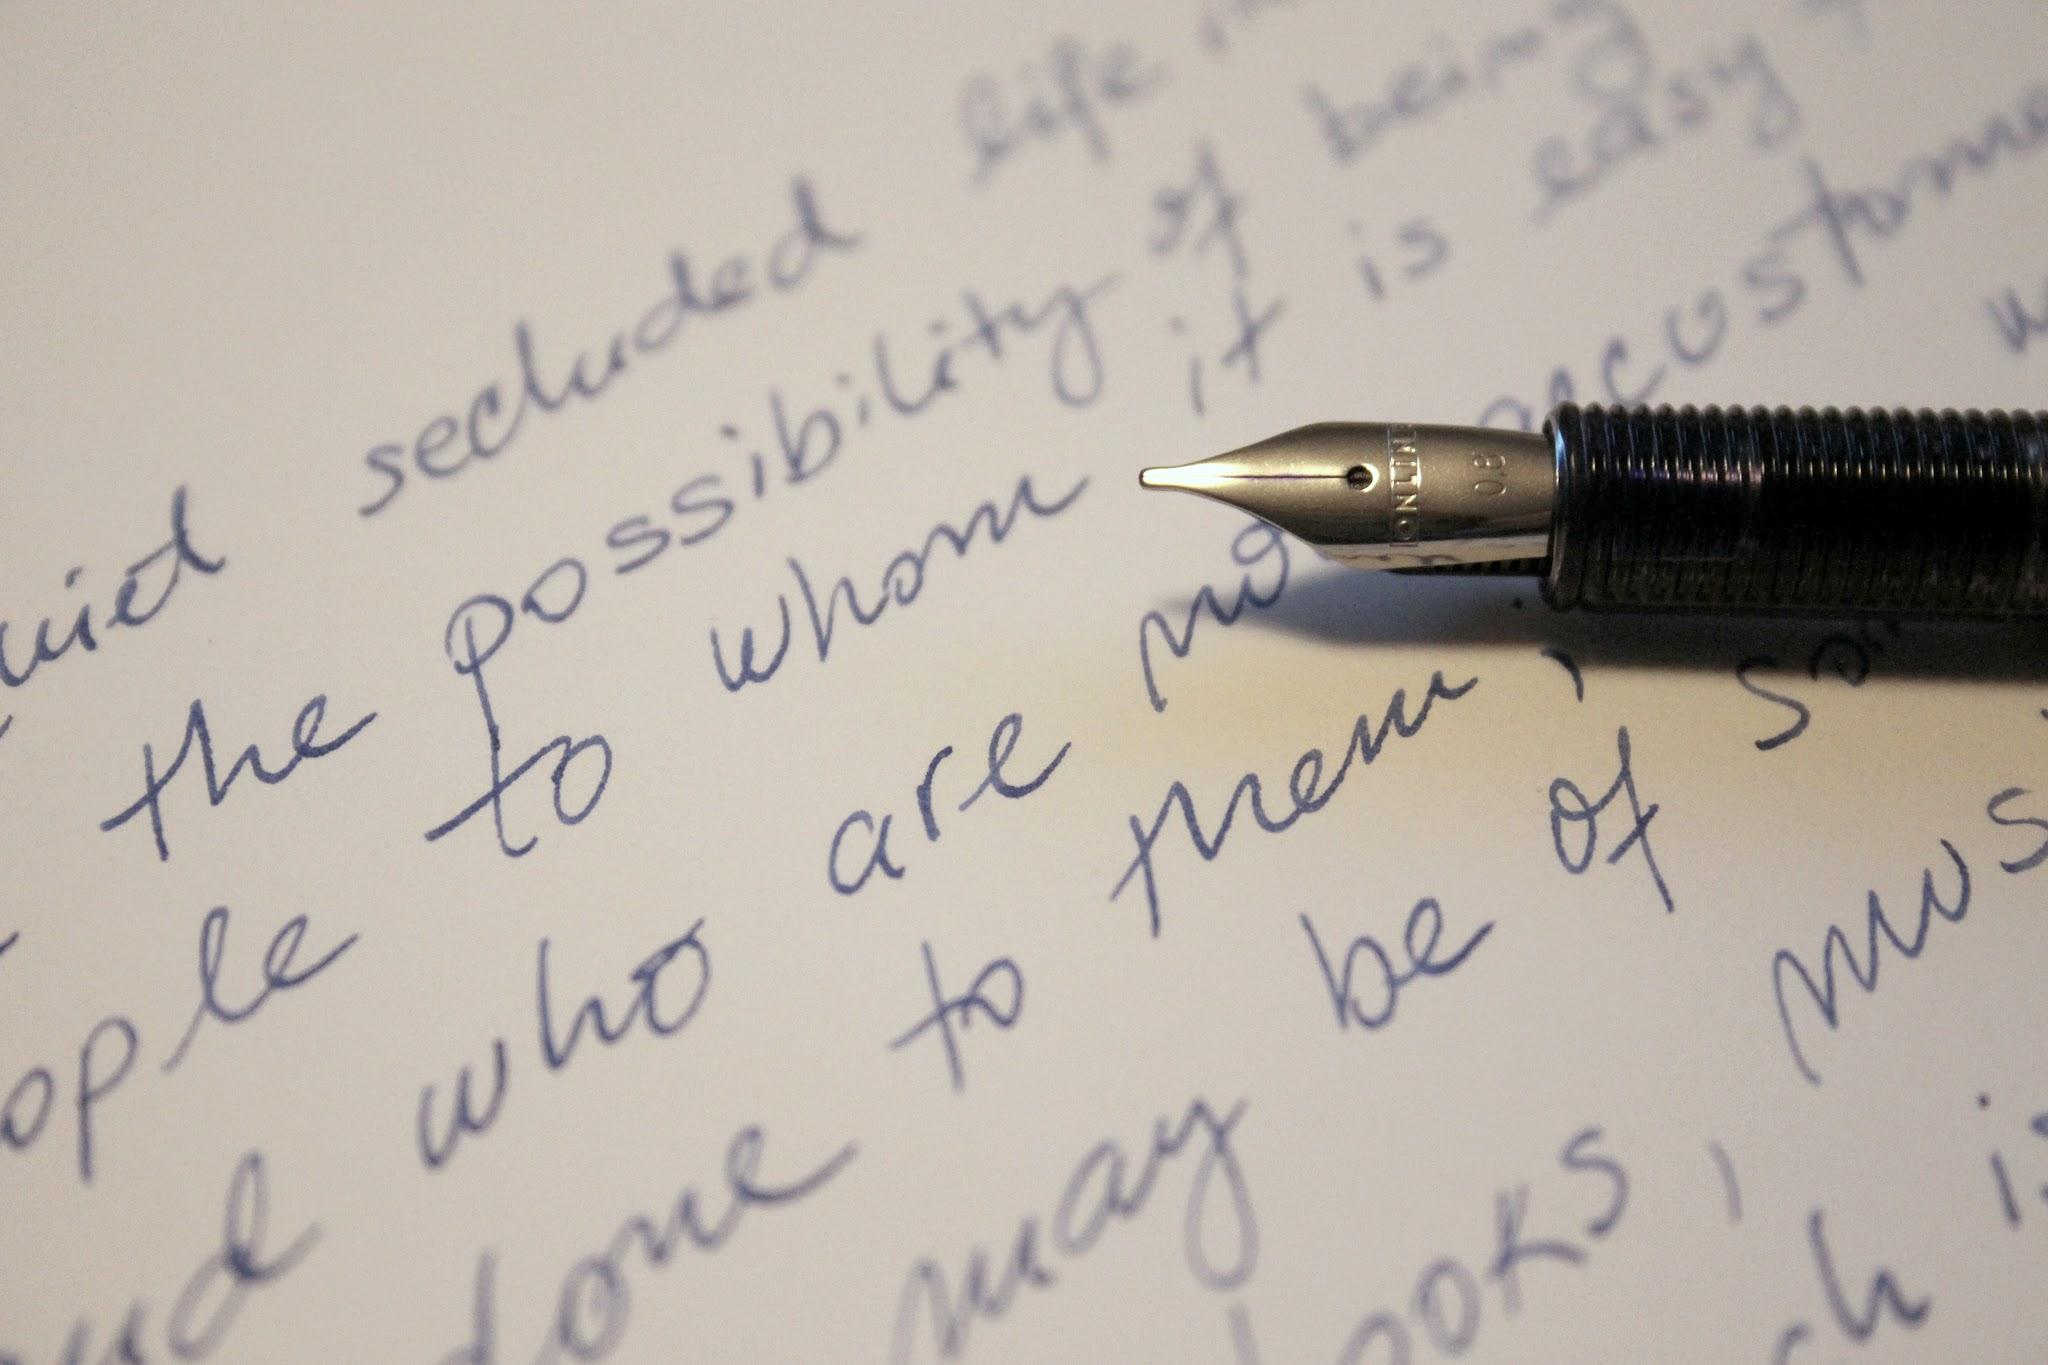 uiet secluded life
the possibility of being
ople to whom it is easy
nd who are no accustome
done to them,
may be of so
ooks, mus
ch is
0.8